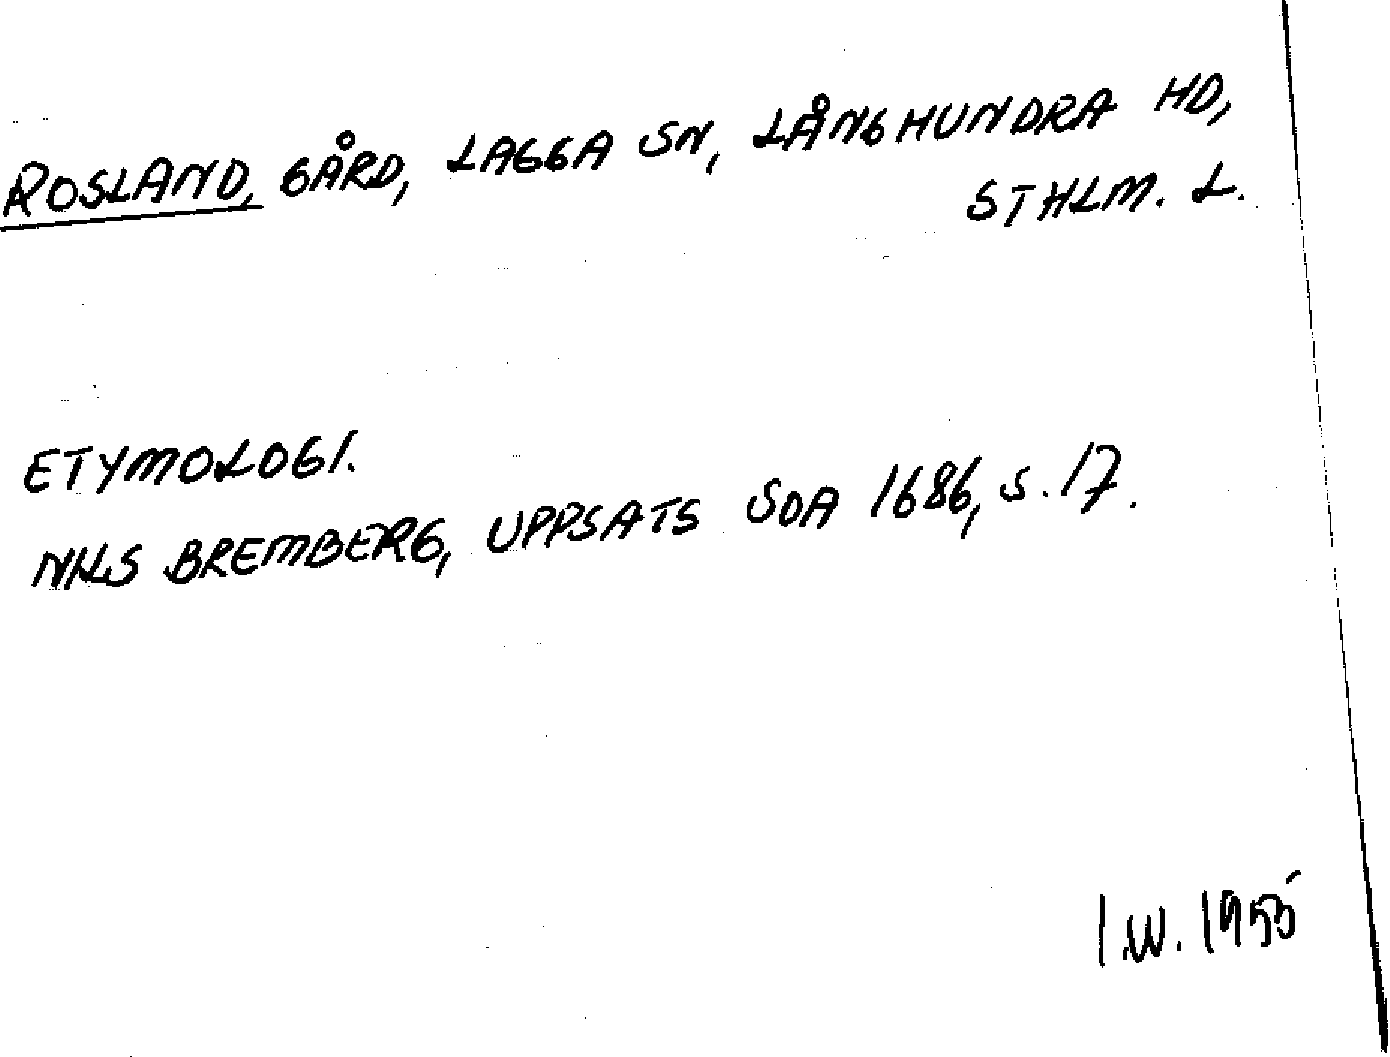 ROSLAND, GÅRD, LAGGA SN, LÅNGHUNDRA HD,
STHLM. L.
ETYMOLOGI.
NILS BREMBERG, UPPSATS SOA 1686, S. 17.
I.W. 1955